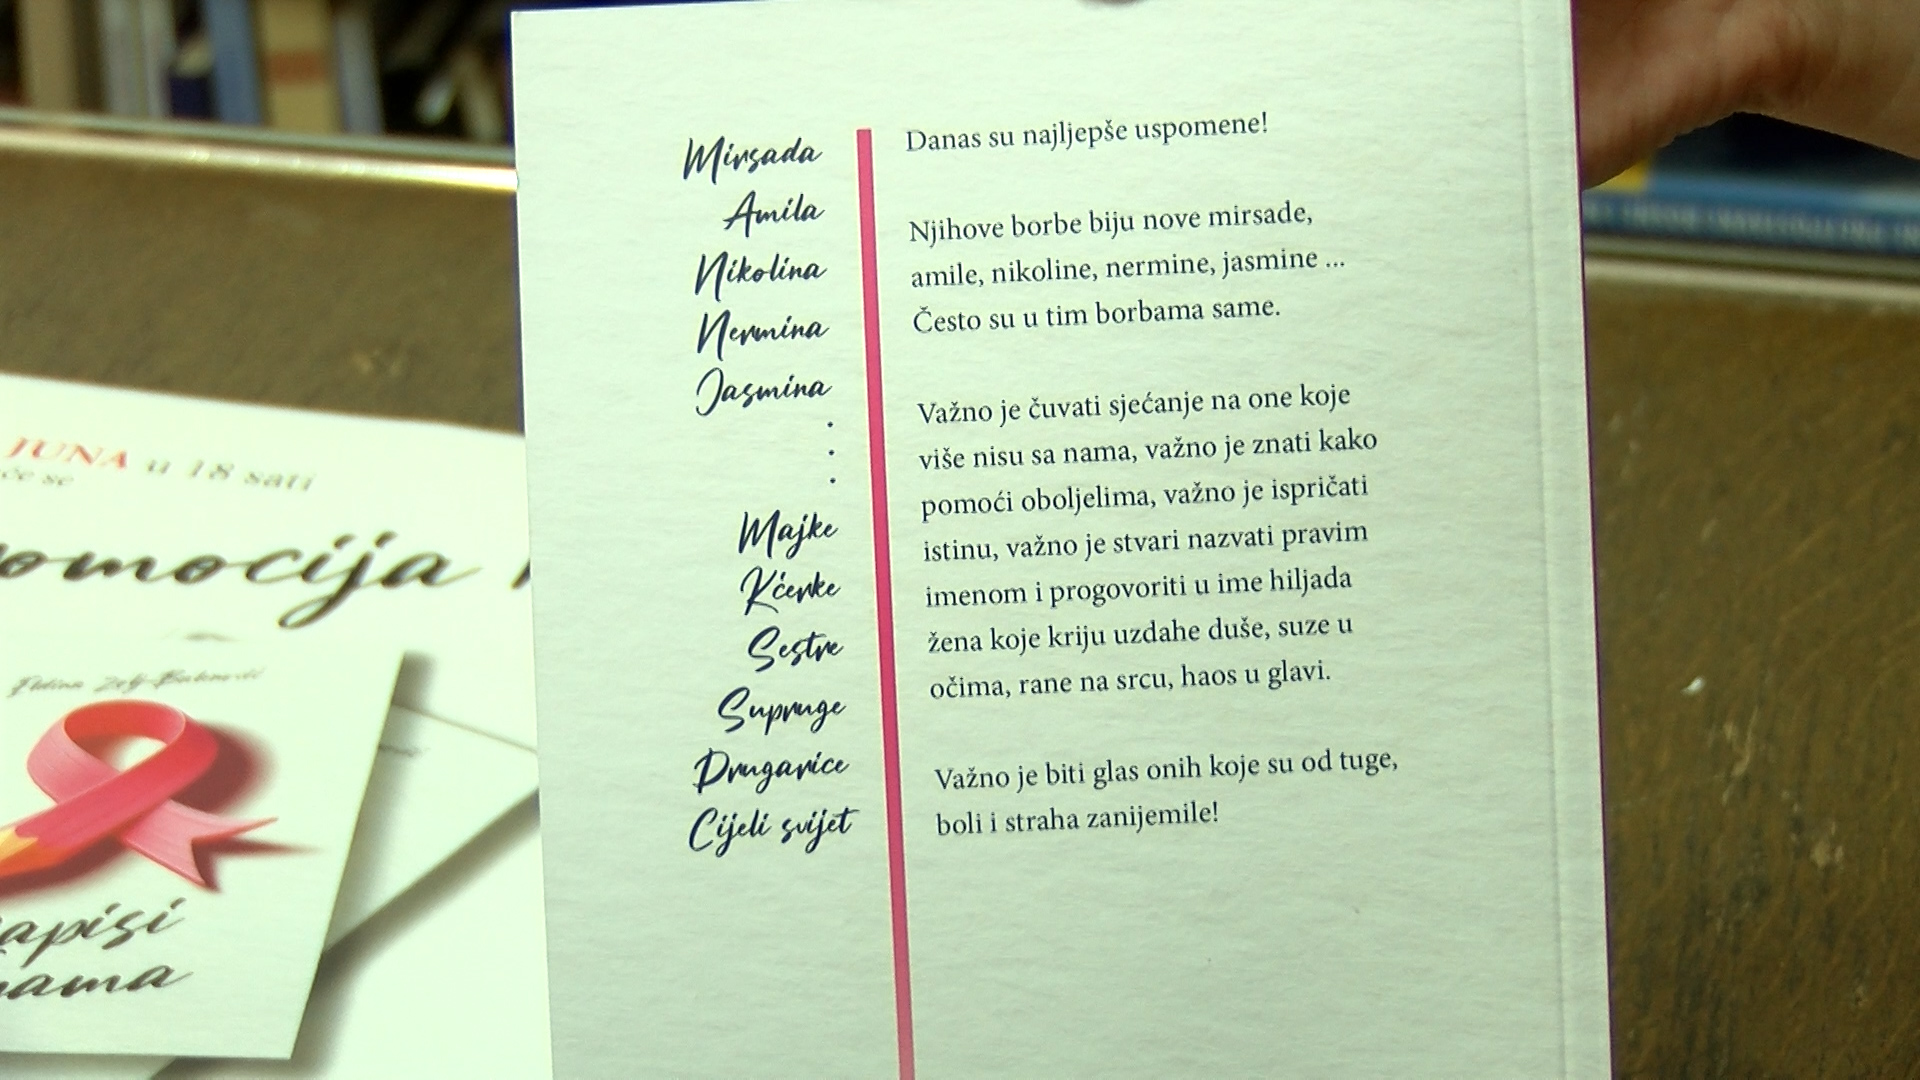 Mirsada
Amila
Nikolina
Nermina
Jasmina
.
.
.
Majke
Kćerke
Sestre
Supruge
Drugarice
Cijeli svijet
Danas su najljepše uspomene!
Njihove borbe biju nove mirsade,
amile, nikoline, nermine, jasmine ...
Često su u tim borbama same.
Važno je čuvati sjećanje na one koje
više nisu sa nama, važno je znati kako
pomoći oboljelima, važno je ispričati
istinu, važno je stvari nazvati pravim
imenom i progovoriti u ime hiljada
žena koje kriju uzdahe duše, suze u
očima, rane na srcu, haos u glavi.
Važno je biti glas onih koje su od tuge,
boli i straha zanijemile!
JUNA u 18 sati
će se
omocija
apisi
nama